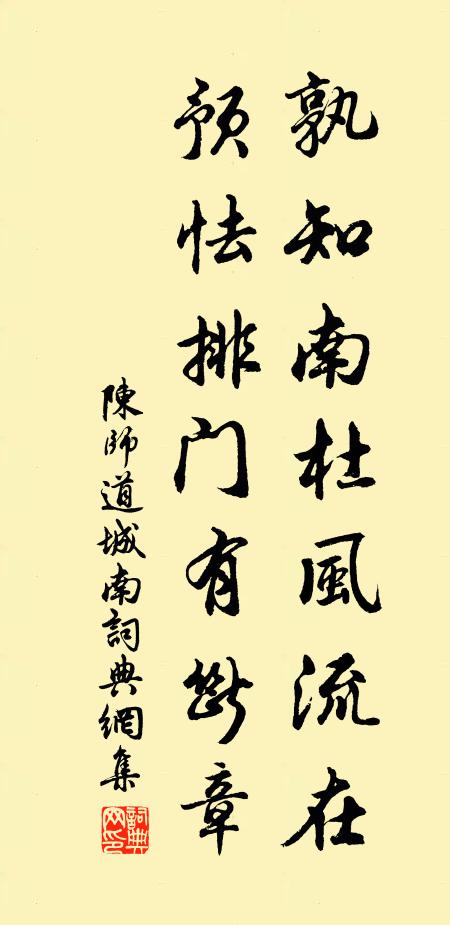 孰知南杜風流在
預怯排門有斷章
陳師道城南詞典網集
詞典网印